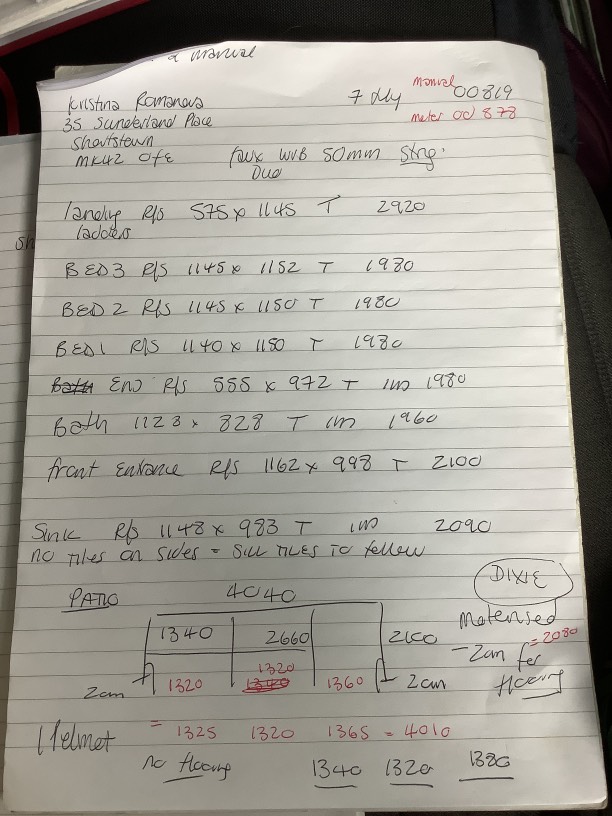 & manual
Kristina Romanova 7 July manual 00819
35 Sunderland Place meter 00 878
Shortstown
MK42 0FE faux WVB 50mm Strg.
Duo
landing R/S 575 x 1145 T 2920
ladders
BED 3 R/S 1145 x 1152 T 1980
BED 2 R/S 1145 x 1150 T 1980
BED 1 R/S 1140 x 1150 T 1980
Bath EnS R/S 555 x 972 T in 1980
Bath 1123 x 828 T in 1960
front Entrance R/S 1162 x 998 T 2100
Sink R/S 1148 x 983 T in 2090
no tiles on sides = Sill TILES TO follow
PATIO 4040 DIXIE
1340 2660 2100 Motorised
- 2cm for = 2080
flooring
1320
2cm 1320 1340 1360 2cm
Helmet = 1325 1320 1365 = 4010
no flooring 1340 1320 1380